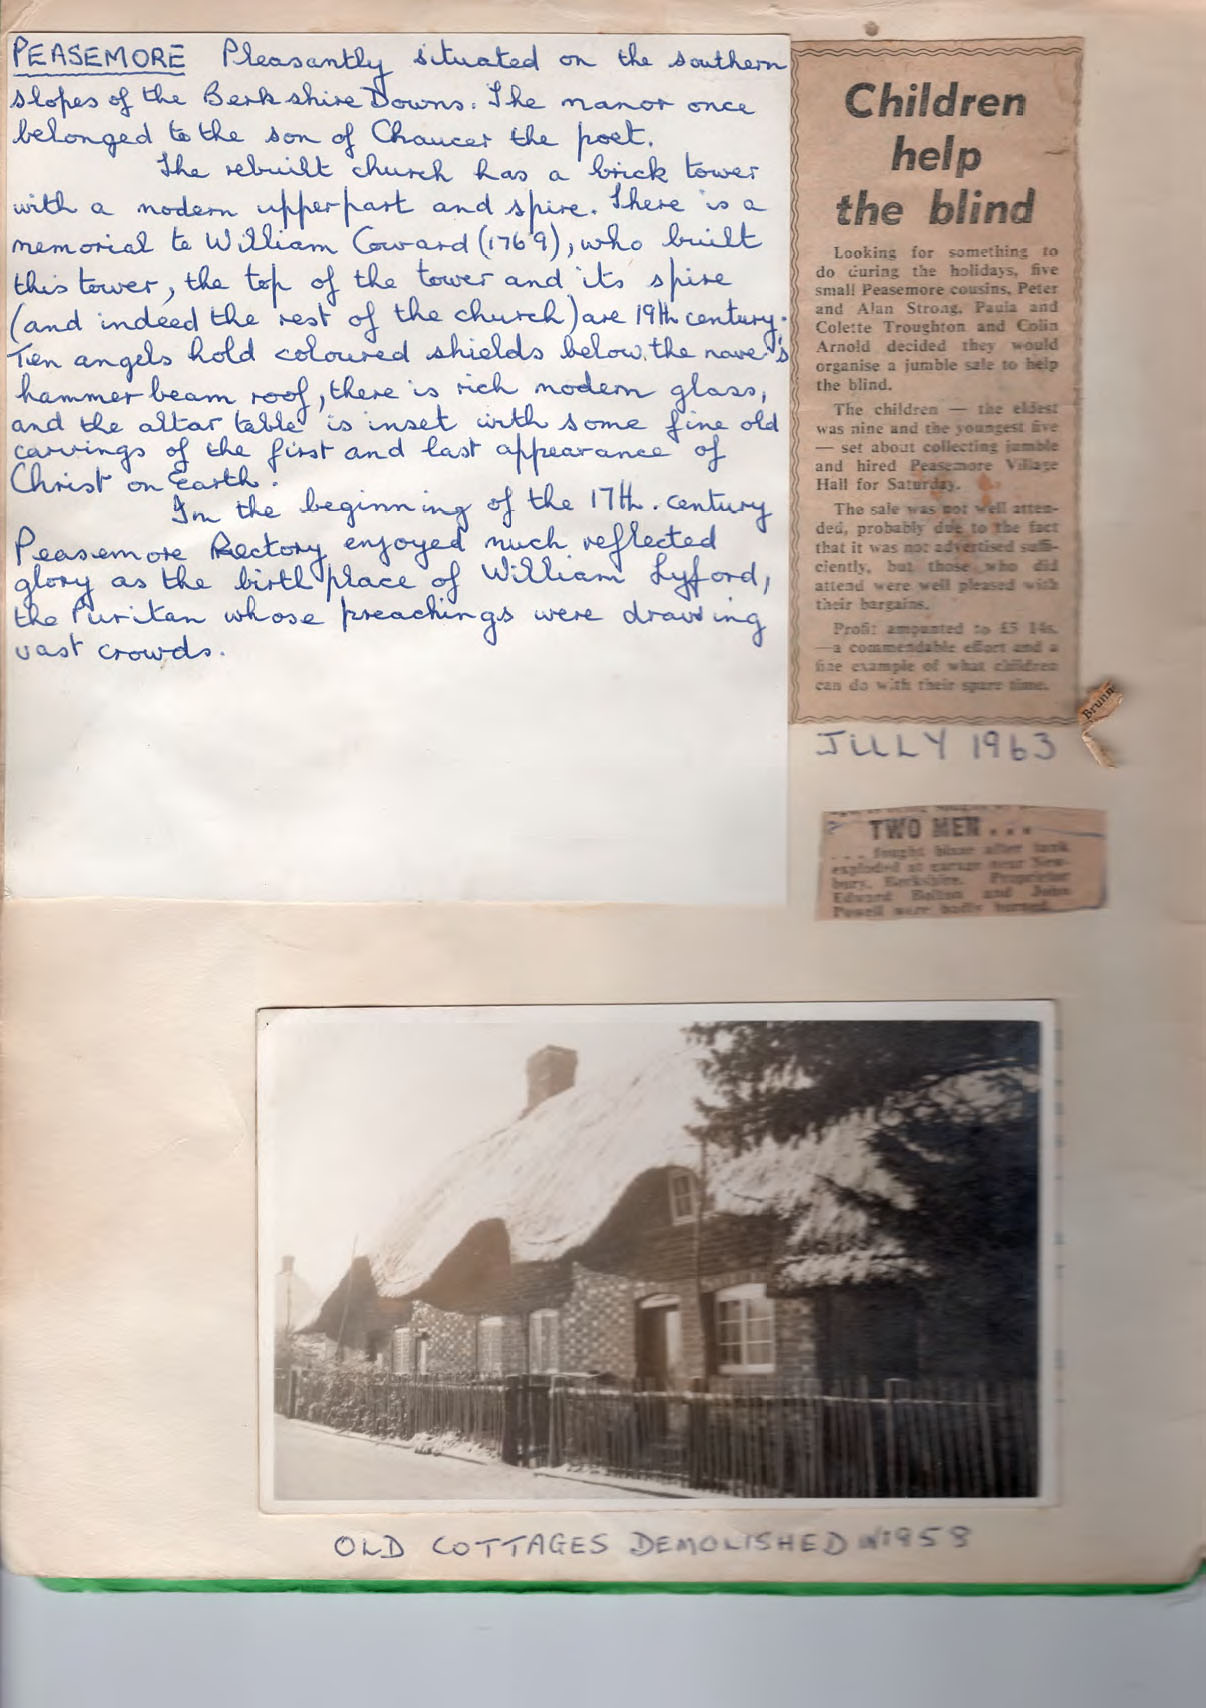 PEASEMORE Pleasantly situated on the southern
slopes of the Berkshire Downs. The manor once
belonged to the son of Chaucer the poet.
The rebuilt church has a brick tower
with a modern upper part and spire. There is a
memorial to William Coward (1769), who built
this tower, the top of the tower and its spire
(and indeed the rest of the church) are 19th century.
Ten angels hold coloured shields below the nave's
hammer beam roof, there is rich modern glass,
and the altar table is inset with some fine old
carvings of the first and last appearance of
Christ on Earth.
In the beginning of the 17th. century
Peasemore Rectory enjoyed much reflected
glory as the birthplace of William Lyford,
the Puritan whose preachings were drawing
vast crowds.
Children
help
the blind
Looking for something to
do during the holidays, five
small Peasemore cousins, Peter
and Alan Strong, Paula and
Colette Troughton and Colin
Arnold decided they would
organise a jumble sale to help
the blind.
The children — the eldest
was nine and the youngest five
— set about collecting jumble
and hired Peasemore Village
Hall for Saturday.
The sale was not well atten-
ded, probably due to the fact
that it was not advertised suffi-
ciently, but those who did
attend were well pleased with
their bargains.
Profit amounted to £5 14s.
—a commendable effort and a
fine example of what children
can do with their spare time.
Brunn
JULLY 1963
TWO MEN . . .
. . . fought blaze after tank
exploded at garage near New-
bury, Berkshire. Proprietor
Edward Bolton and John
Powell were badly burned.
OLD COTTAGES DEMOLISHED IN 1958